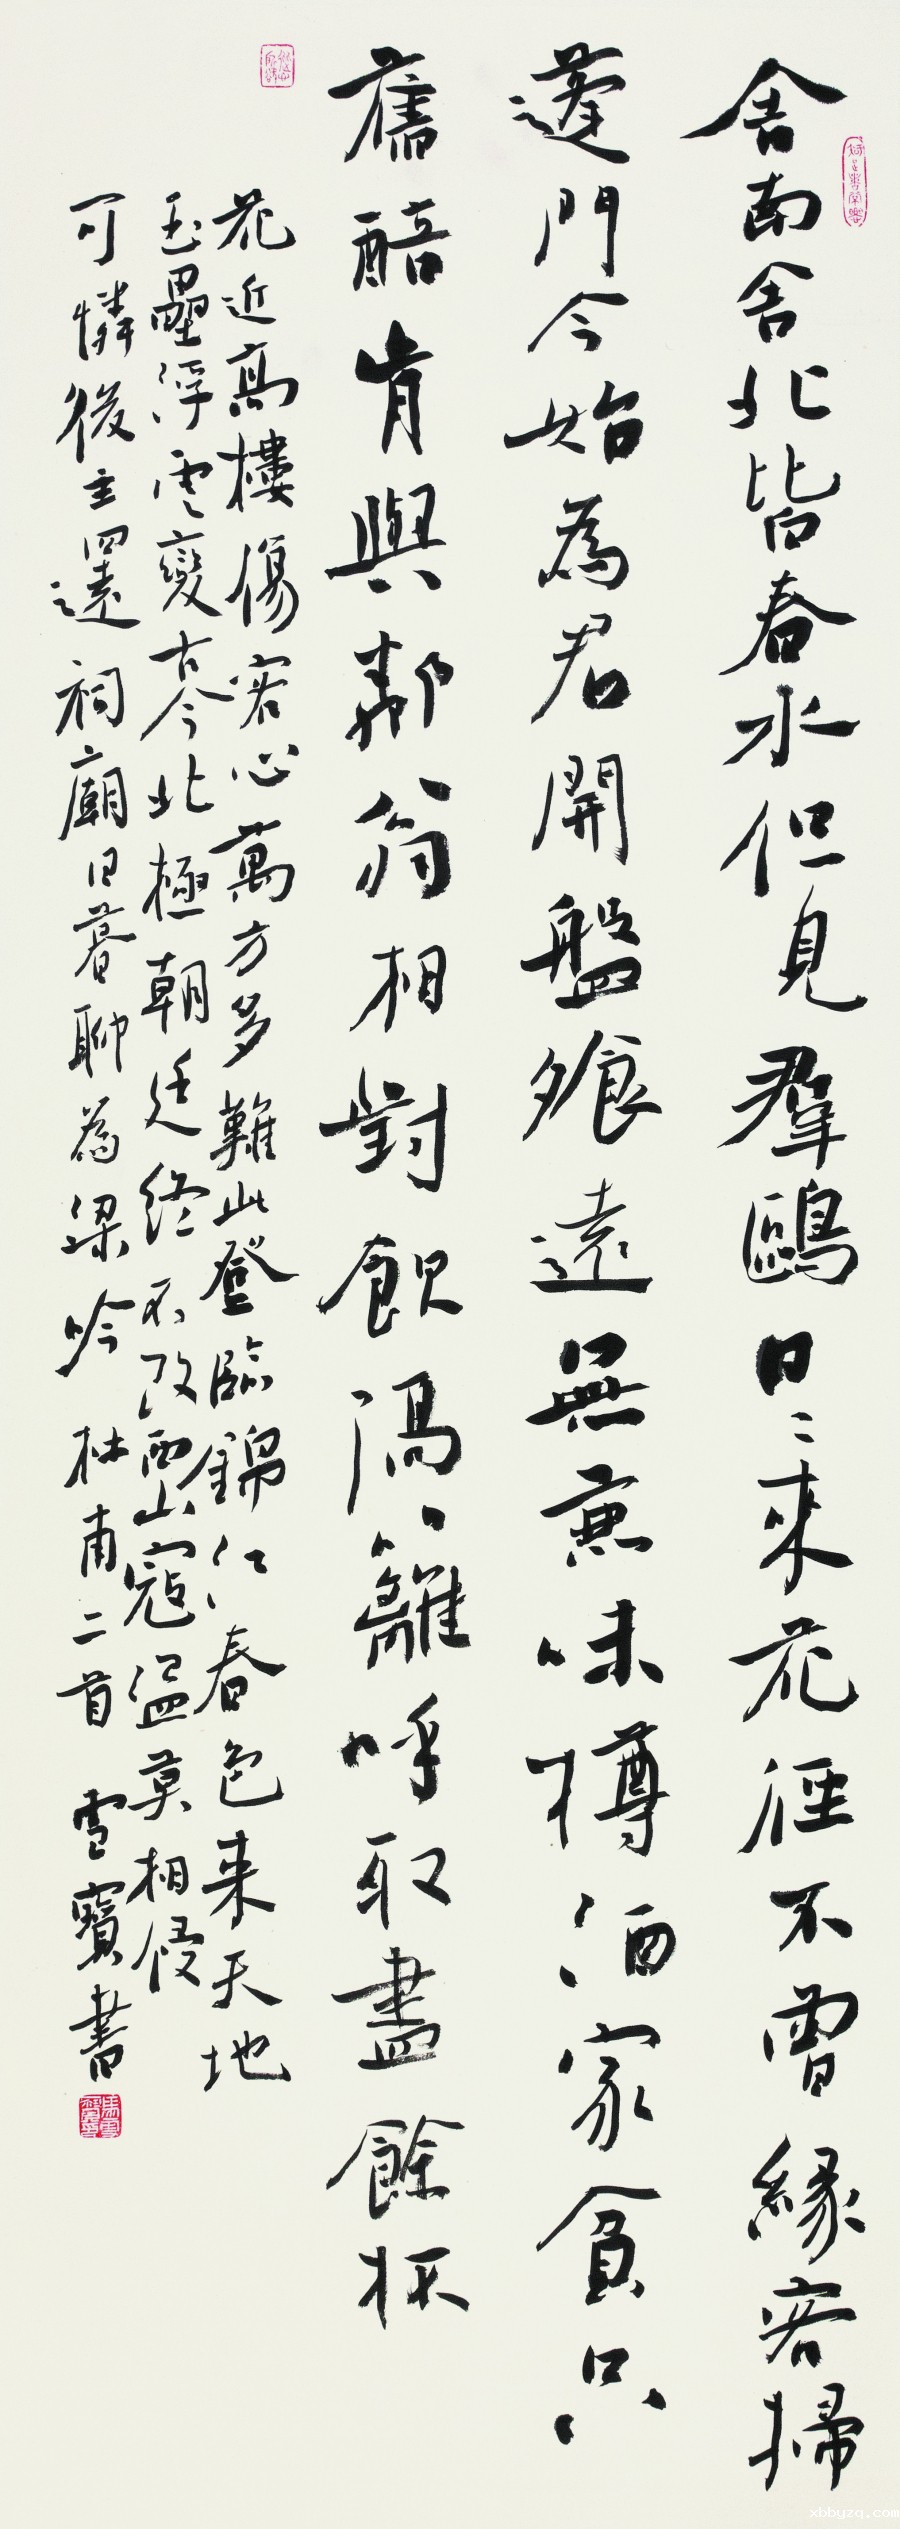 舍南舍北皆春水但見羣鷗日〻來花徑不曾緣客掃
蓬門今始為君開盤飧遠無兼味樽酒家貧只
舊醅肯與鄰翁相對飲隔籬呼取盡餘杯
花近高樓傷客心萬方多難此登臨錦江春色来天地
玉壘浮雲變古今北極朝廷終不改西山寇盜莫相侵
可憐後主還祠廟日暮聊為梁吟 杜甫二首 雪寶書
xbbyzq.com